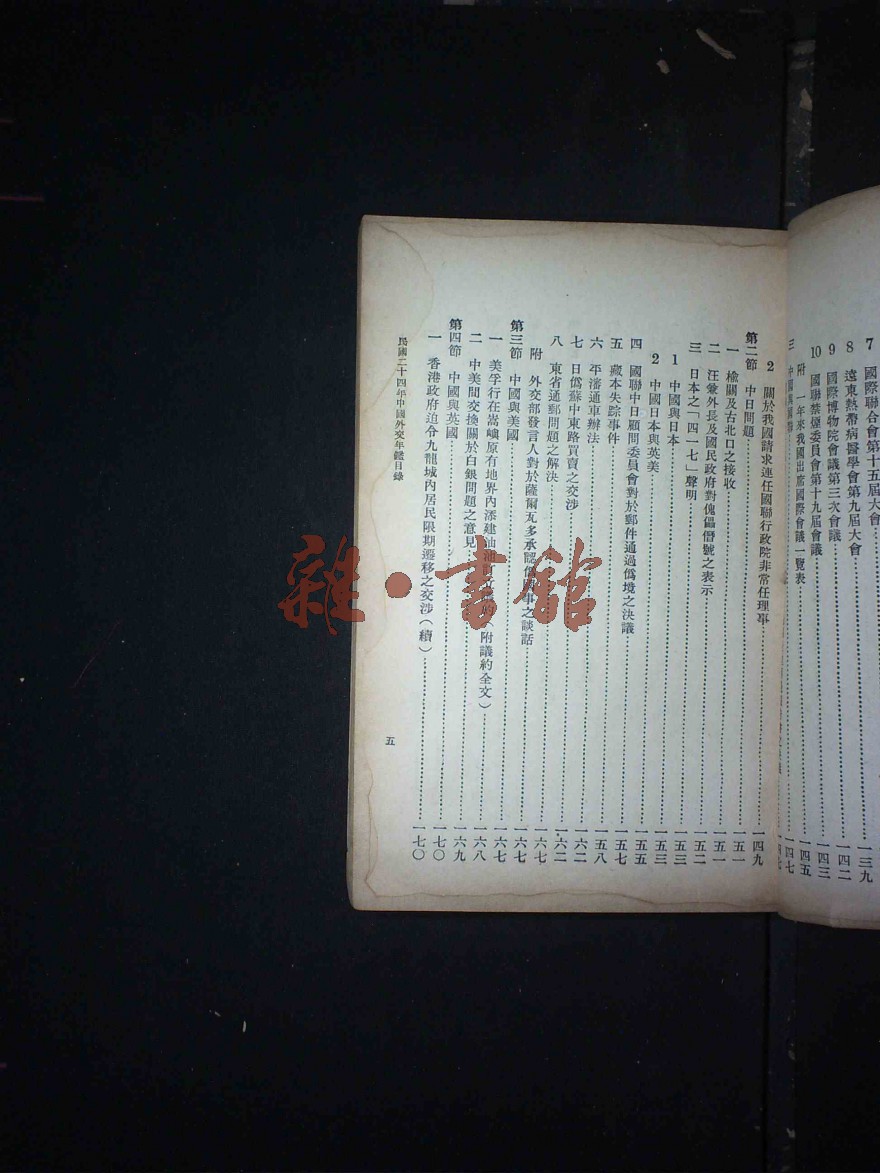 7 國際聯合會第十五屆大會……一三九
8 遠東熱帶病醫學會第九屆大會……一四二
9 國際博物院會議第三次會議……一四三
10 國聯禁煙委員會第十九屆會議……一四五
附 一年來我國出席國際會議一覽表……一四七
三 中國與國聯
2 關於我國請求連任國聯行政院非常任理事……一四九
第二節 中日問題……一五一
一 榆關及古北口之接收……一五一
二 汪兼外長及國民政府對傀儡僭號之表示……一五二
三 日本之「四一七」聲明……一五三
1 中國與日本……一五三
2 中國日本與英美……一五五
四 國聯中日顧問委員會對於郵件通過僞境之決議……一五七
五 藏本失踪事件……一五八
六 平瀋通車辦法……一六二
七 日僞蘇中東路買賣之交涉……一六二
八 東省通郵問題之解決……一六七
附 外交部發言人對於薩爾瓦多承認僞事之談話……一六七
第三節 中國與美國……一六七
一 美孚行在嵩嶼原有地界內添建油池(附議約全文)……一六八
二 中美間交換關於白銀問題之意見……一六九
第四節 中國與英國……一七〇
一 香港政府迫令九龍城內居民限期遷移之交涉(續)……一七〇
民國二十四年中國外交年鑑目錄
五
雜·書館